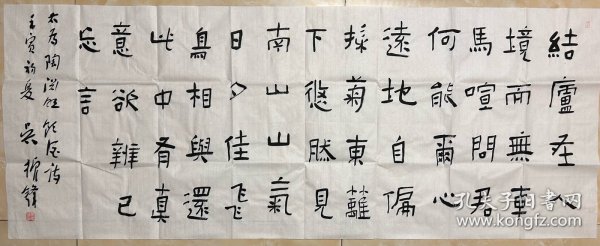 結廬在人
境而無車
馬喧問君
何能爾心
遠地自偏
採菊東蘺
下悠然見
南山山氣
日夕佳飛
鳥相與還
此中有真
意欲辨已
忘言
右為陶淵明飲酒詩
壬寅初夏 吳振鋒
孔夫子旧书网
www.kongfz.com